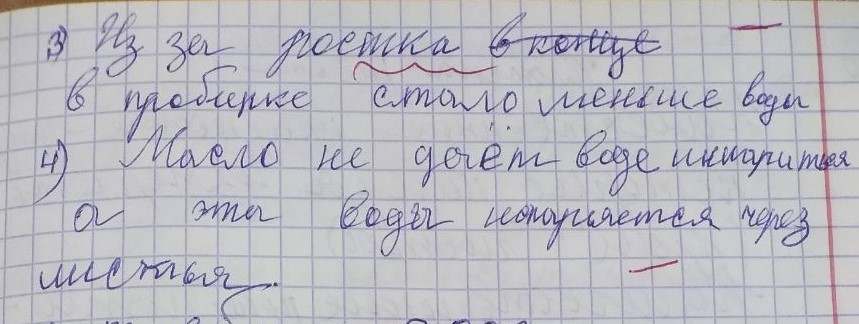 3) Из за ростка в конце
в пробирке стало меньше воды
4) Масло не даёт воде испариться
а эта вода испаряется через
листья.